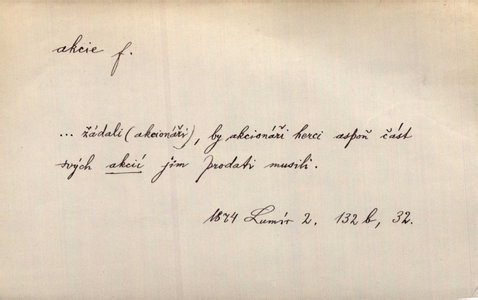 akcie f.
... žádali (akcionáři), by akcionáři herci aspoň část
svých akcií jim prodati musili.
1874 Lumír 2. 132 b, 32.